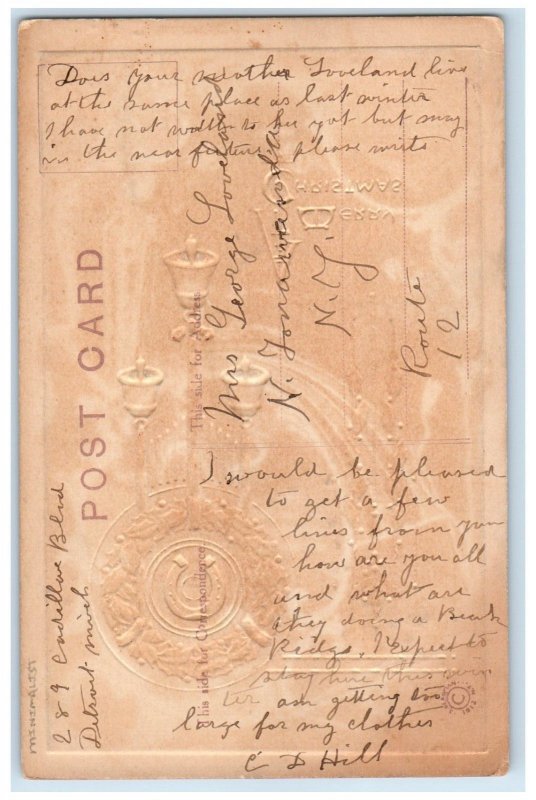 Does your mother Loveland live
at the same place as last winter
I have not written to her yet but may
in the near future please write
MERRY
CHRISTMAS
POST CARD
This side for Address
Mrs George Loveland
N. Tonawanda
N. Y.
Route
12
This side for Correspondence
289 Cadillac Blvd
Detroit Mich
I would be pleased
to get a few
lines from you
how are you all
and what are
they doing a Beach
Ridge, I expect to
stay here this win
ter am getting too
large for my clothes
C D Hill